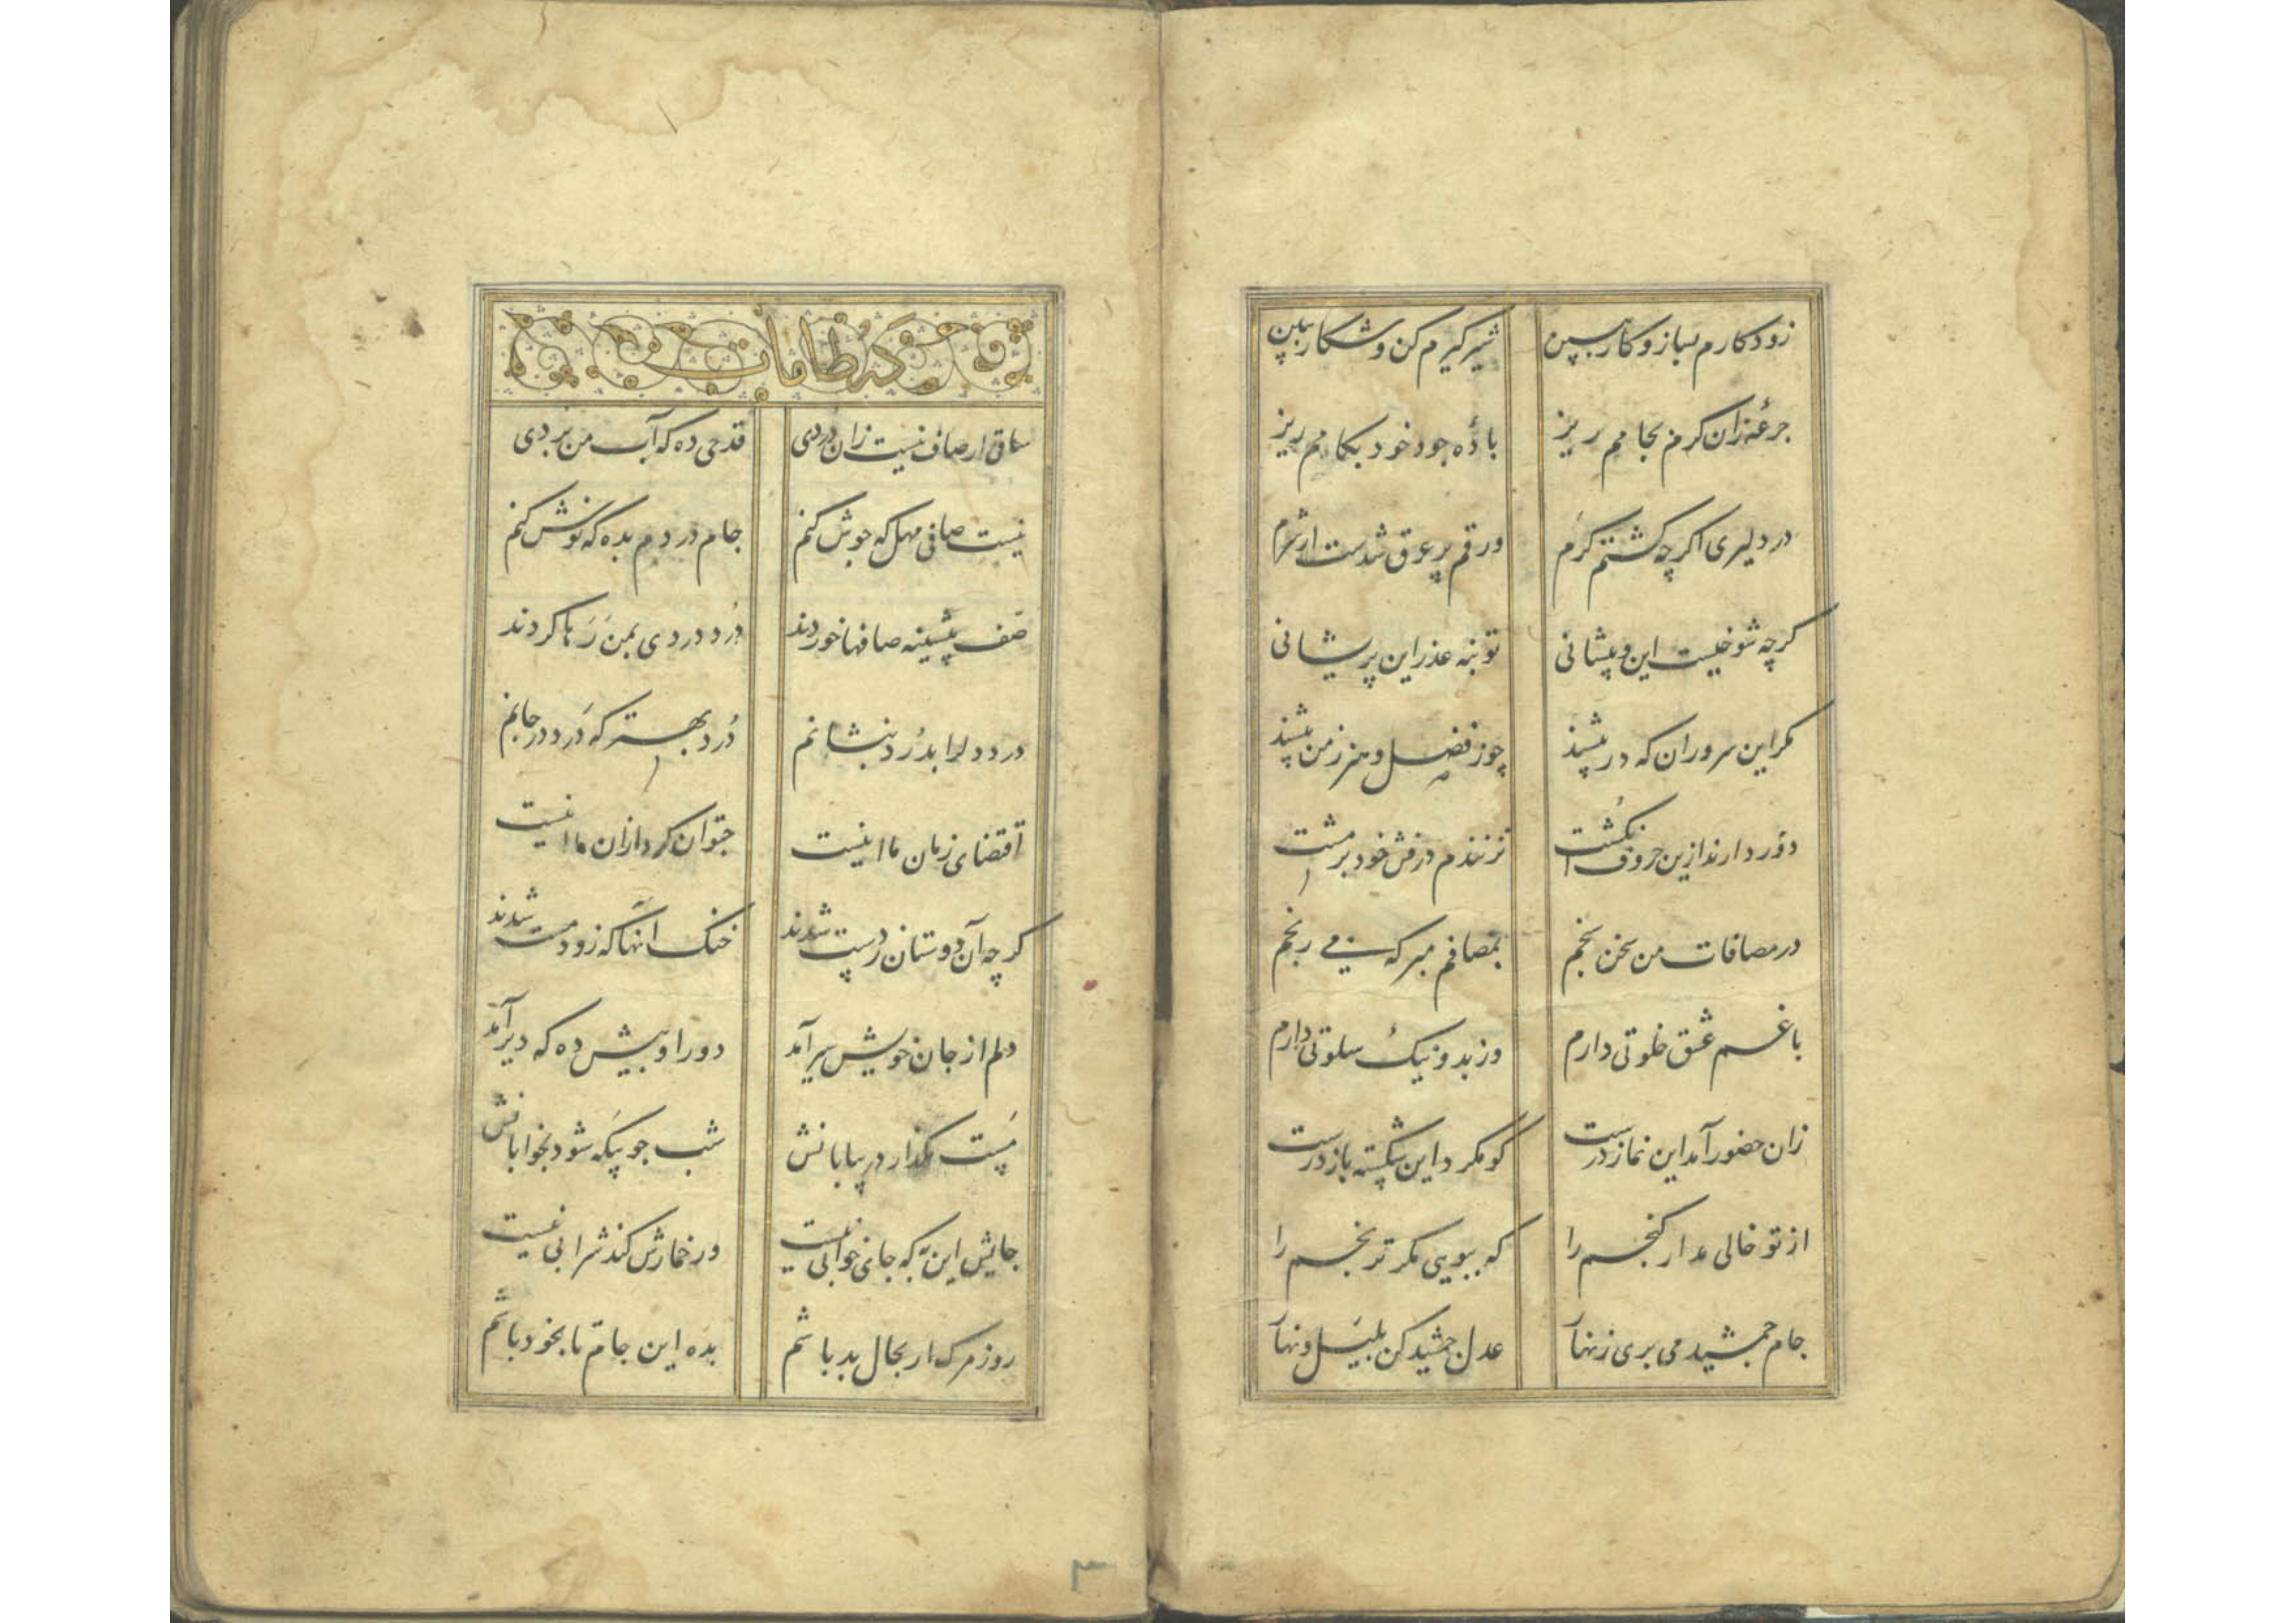 زود کارم بساز و کار ببین شیر گیرم کن و شکار ببین
جرعهٔ زان کرم بجامم ریز بادهٔ جود خود بکامم ریز
در دلیری اگر چه گشتم گرم ورقم پر عرق شدست از شرم
گرچه شوخیست این و پیشانی تو بنه عذر این پریشانی
مگر این سروران که در پیشند چو ز فضل و هنر ز من بیشند
دور دارند ازین حروف انگشت نزنندم درفش خود بر مشت
در مصافات من سخن سنجم بمصافم مبر که می رنجم
با غم عشق خلوتی دارم وز بد و نیک سلوتی دارم
زان حضور آمد این نماز درست گو مگرد این شکسته باز درست
از تو خالی مدار کنجم را که ببویی مگر ترنجم را
جام جمشید می بری زنهار عدل جمشید کن بلیل و نهار
گه طامات
ساقی ار صاف نیست زان دردی قدحی ده که آب من بردی
نیست صافی مهل که جوش کنم جام دردم بده که نوش کنم
صف پیشینه صافها خوردند درد دردی بمن رها کردند
درد دل را بدرد بنشانم درد بهتر که درد در جانم
اقتضای زمان ما اینست چتوان کرد ازان ما اینست
گر چه آن دوستان ز دست شدند خنک آنها که زود مست شدند
دلم از جان خویش سیر آمد دور او بیش ده که دیر آمد
مست مگذار در بیابانش شب چو بیگه شود بخوابانش
جایش این به که جای خوابی نیست ور خمارش کند شرابی نیست
روز مرگ ار بحال بد باشم بده این جام تا بخود باشم
۳